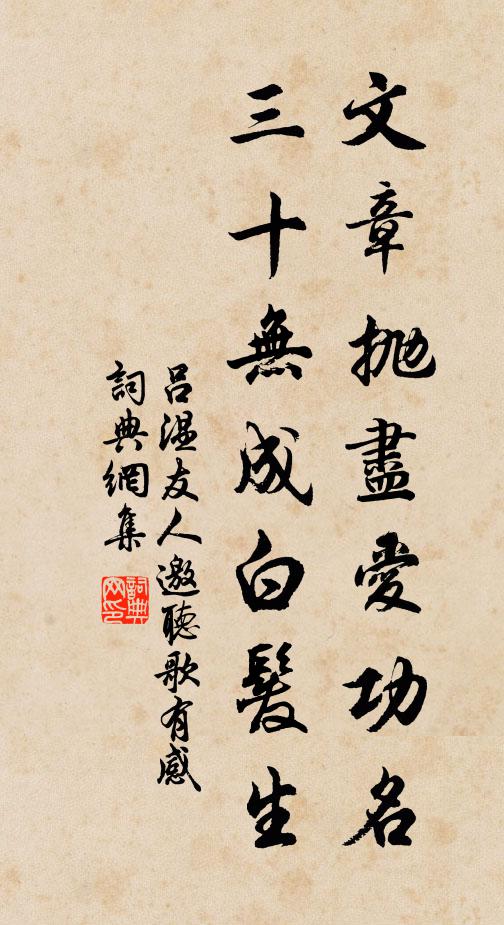 文章拋盡愛功名
三十無成白髮生
呂溫友人邀聽歌有感
詞典網集
詞典
網印